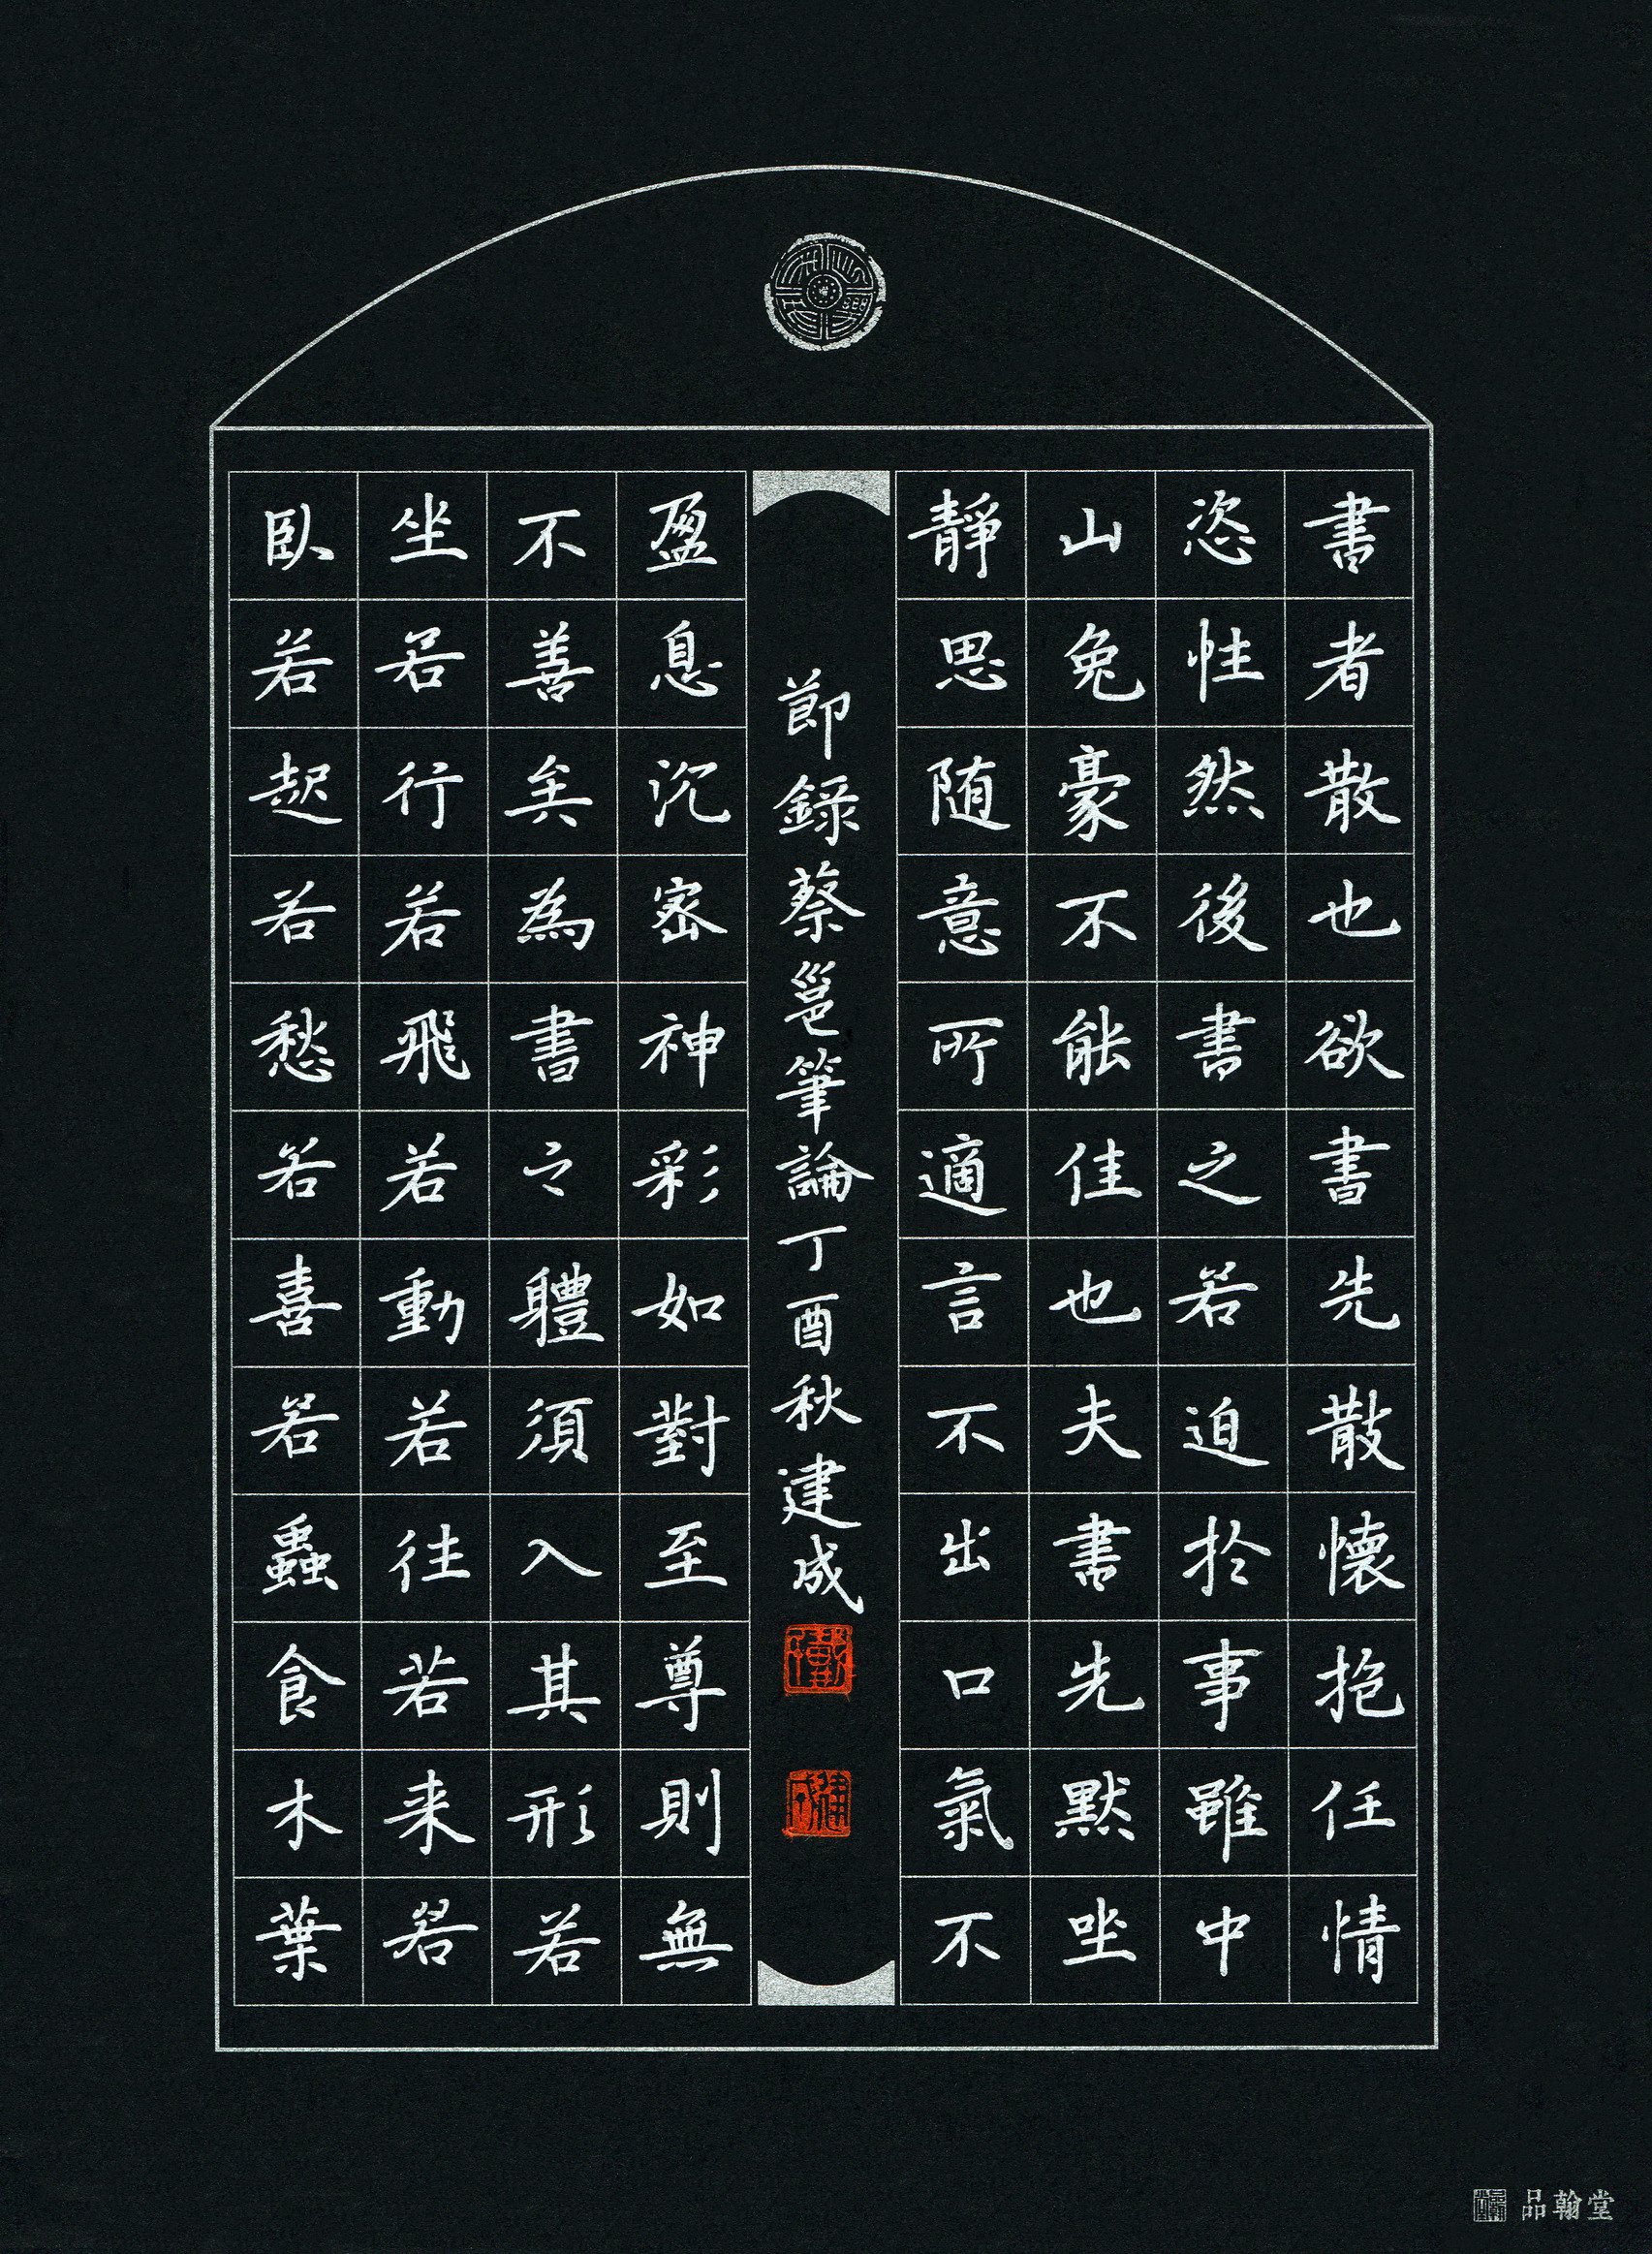 書者散也欲書先散懷抱任情
恣性然後書之若迫於事雖中
山兔豪不能佳也夫書先默坐
靜思随意所適言不出口氣不
盈息沉密神彩如對至尊則無
不善矣為書之體須入其形若
坐若行若飛若動若往若来若
臥若起若愁若喜若蟲食木葉
節錄蔡邕筆論丁酉秋建成
品翰堂